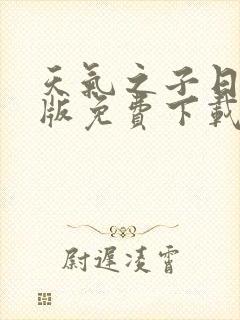 天氣之子日
版免費下載
尉遲凌霄